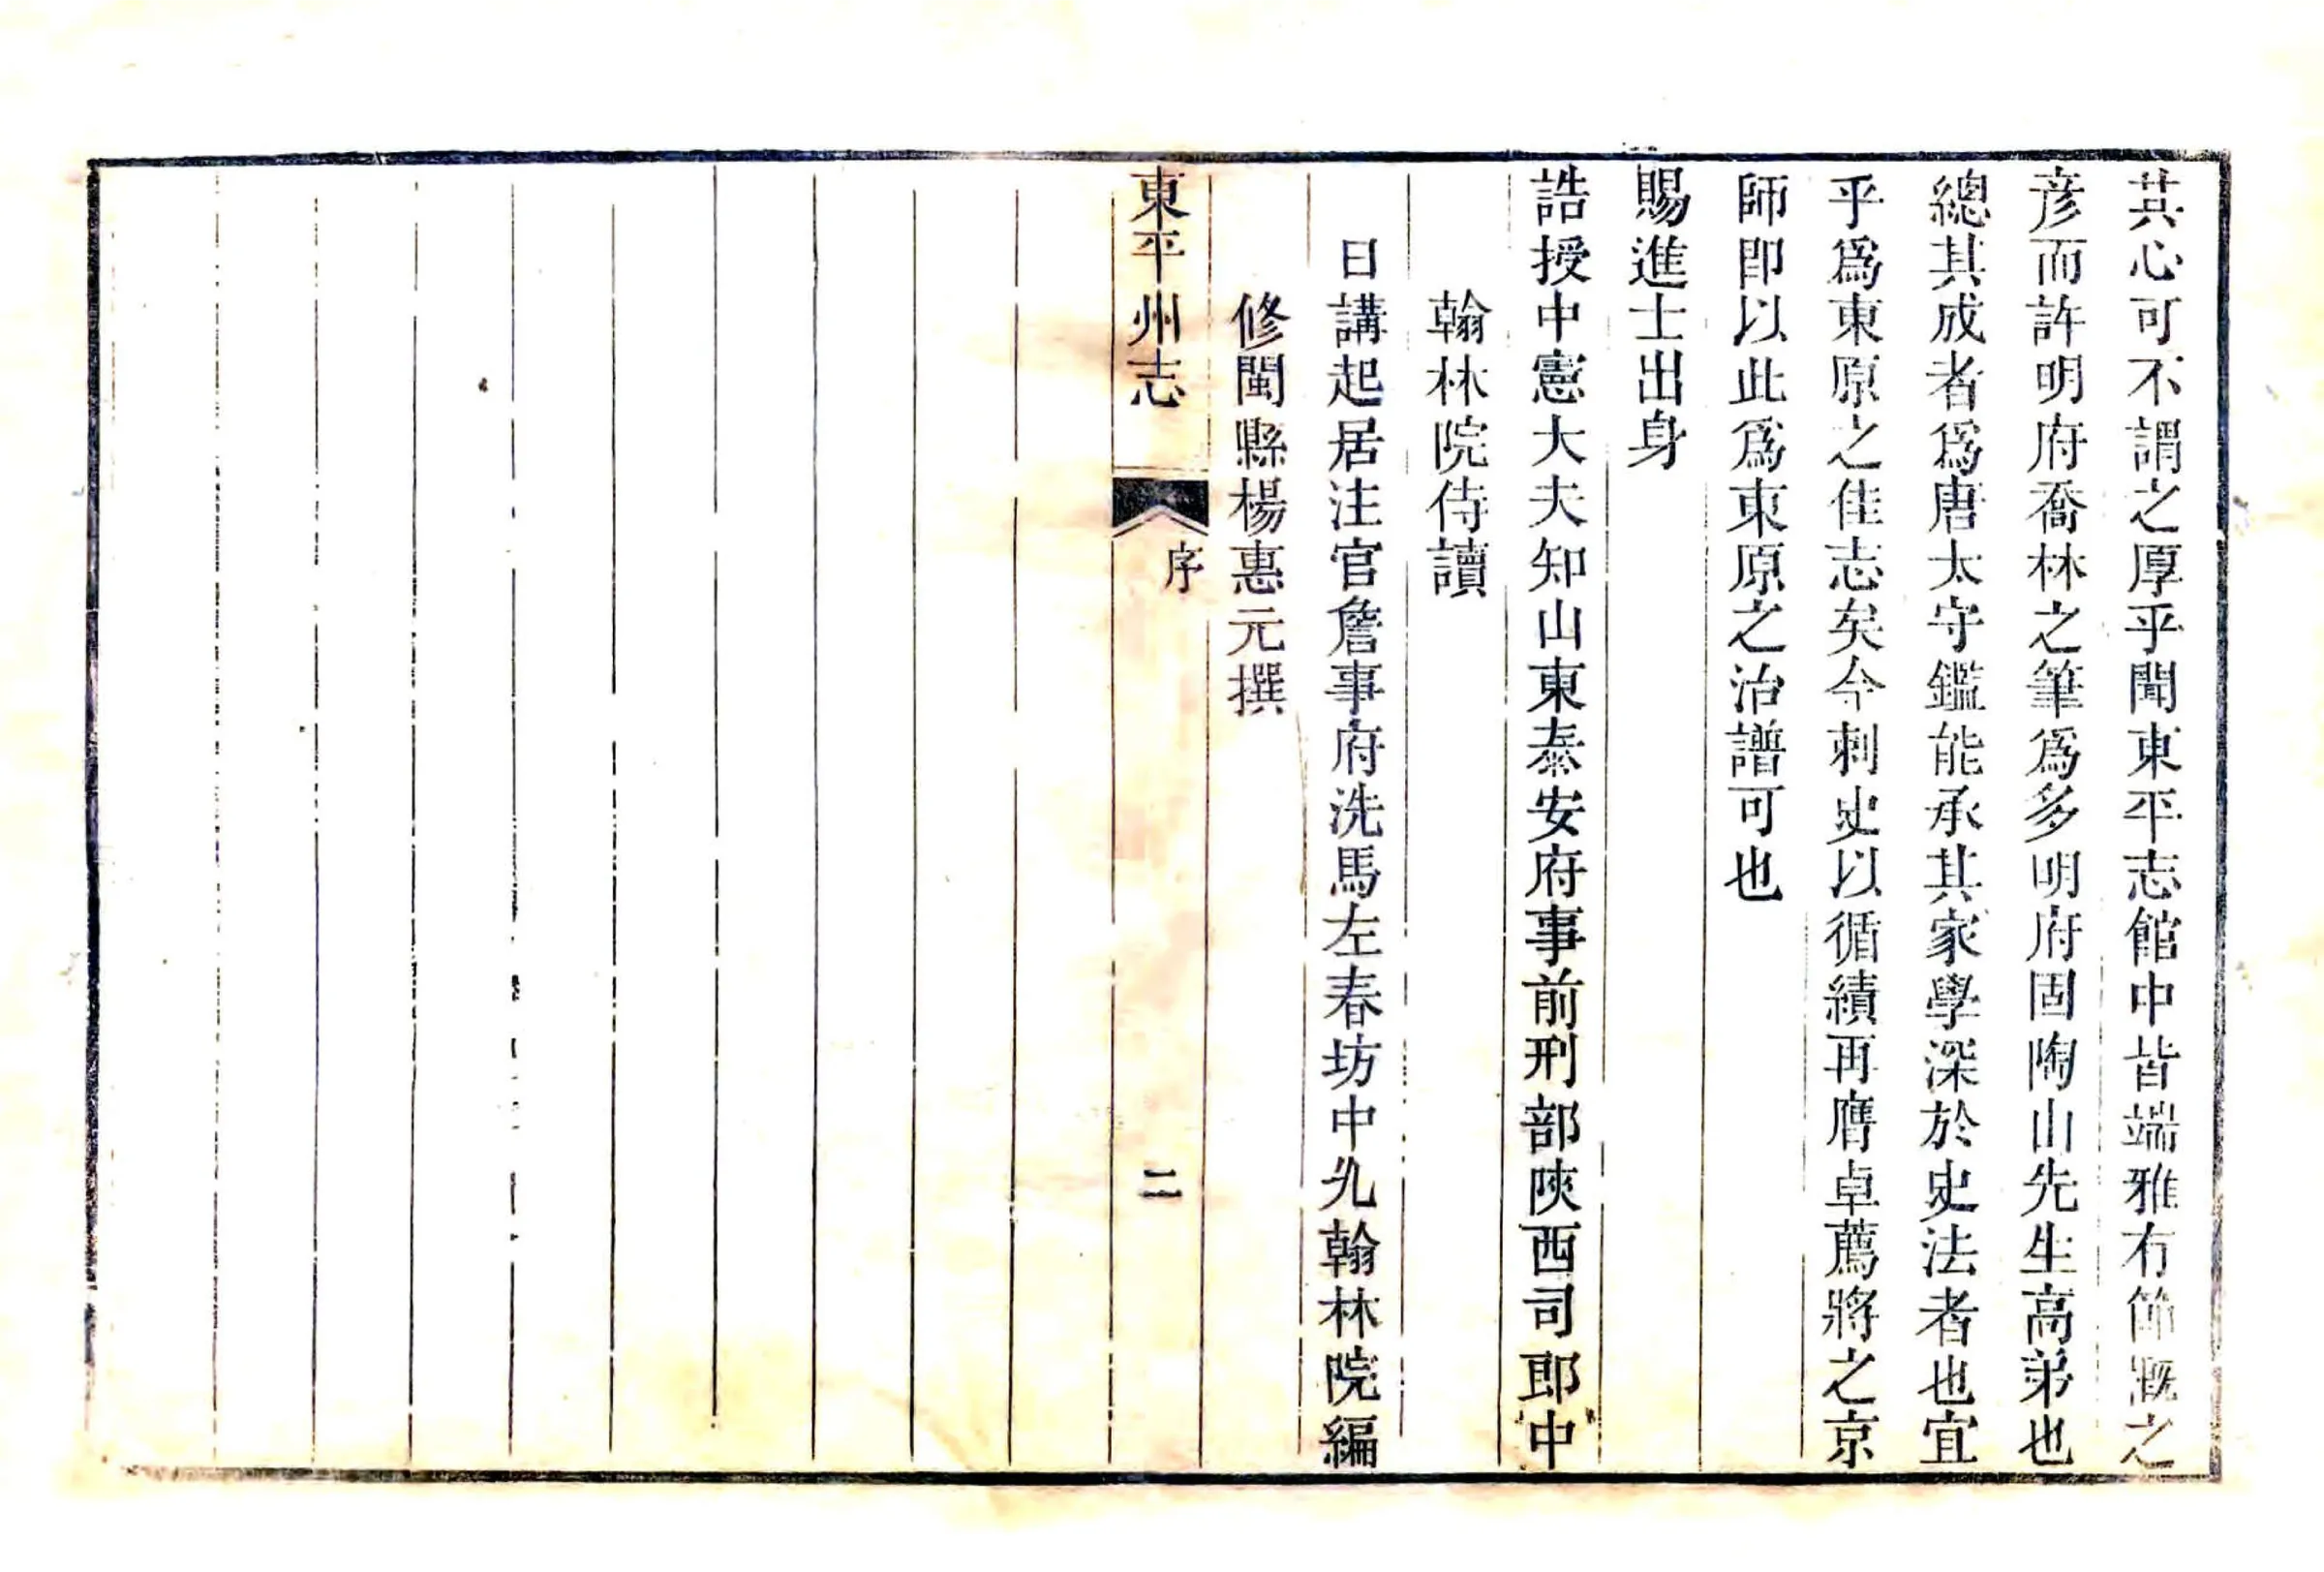 其心可不謂之厚乎聞東平志館中皆端雅有節槪之
彥而許明府喬林之筆爲多明府固陶山先生高弟也
總其成者爲唐太守鑑能承其家學深於史法者也宜
乎爲東原之佳志矣今刺史以循績再膺卓薦將之京
師即以此爲東原之治譜可也
賜進士出身
誥授中憲大夫知山東泰安府事前刑部陝西司郎中
翰林院侍讀
日講起居注官詹事府洗馬左春坊中允翰林院編
修閩縣楊惠元撰
東平州志
序
二